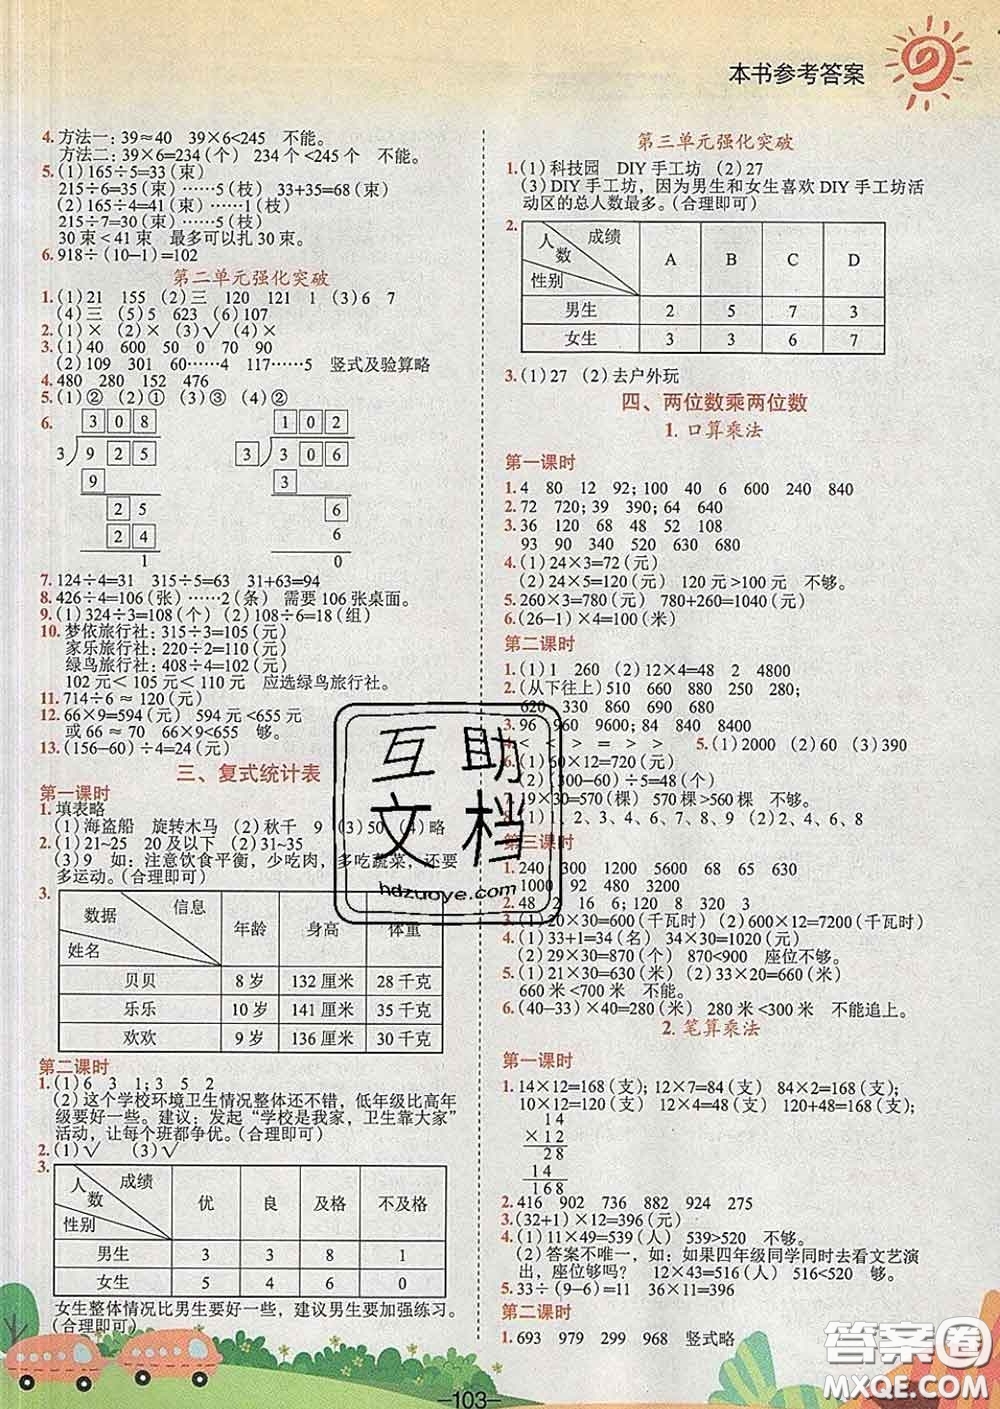 本书参考答案
4. 方法一：39≈40　39×6<245　不能。
方法二：39×6=234(个)　234个<245个　不能。
5. (1)165÷5=33(束)
215÷6=35(束)……5(枝)　33+35=68(束)
(2)165÷4=41(束)……1(枝)
215÷7=30(束)……5(枝)
30束<41束　最多可以扎30束。
6. 918÷(10-1)=102
第二单元强化突破
1. (1)21　155　(2)三　120　121　1　(3)6　7
(4)三　(5)5　623　(6)107
2. (1)×　(2)×　(3)√　(4)×
3. (1)40　600　50　0　70　90
(2)109　301　60……4　117……5　竖式及验算略
4. 480　280　152　476
5. (1)②　(2)①　(3)③　(4)②
6.
308　102
3 925　3 306
9　3
25　6
24　6
1　0
7. 124÷4=31　315÷5=63　31+63=94
8. 426÷4=106(张)……2(条)　需要106张桌面。
9. (1)324÷3=108(个)　(2)108÷6=18(组)
10. 梦依旅行社：315÷3=105(元)
家乐旅行社：220÷2=110(元)
绿鸟旅行社：408÷4=102(元)
102元<105元<110元　应选绿鸟旅行社。
11. 714÷6≈120(元)
12. 66×9=594(元)　594元<655元
或66≈70　66×9<655　够。
13. (156-60)÷4=24(元)
三、复式统计表
第一课时
1. 填表略
(1)海盗船　旋转木马　(2)秋千　9　(3)50　(4)略
2. (1)21~25　20及以下　(2)31~35
(3)9　如：注意饮食平衡，少吃肉，多吃蔬菜，还要
多运动。(合理即可)
3.
数据　信息　姓名　年龄　身高　体重
贝贝　8岁　132厘米　28千克
乐乐　10岁　141厘米　35千克
欢欢　9岁　136厘米　30千克
第二课时
1. (1)6　3　1；3　5　2
(2)这个学校环境卫生情况整体还不错，低年级比高年
级要好一些。建议：发起“学校是我家，卫生靠大家”
活动，让每个班都争优。(合理即可)
2. (1)√　(3)√
3.
人数　成绩　性别　优　良　及格　不及格
男生　3　3　8　1
女生　5　4　6　0
女生整体情况比男生要好一些，建议男生要加强练习。
(合理即可)
第三单元强化突破
1. (1)科技园　DIY手工坊　(2)27
(3)DIY手工坊，因为男生和女生喜欢DIY手工坊活
动区的总人数最多。(合理即可)
2.
人数　成绩　性别　A　B　C　D
男生　2　5　7　3
女生　3　3　6　7
3. (1)27　(2)去户外玩
四、两位数乘两位数
1. 口算乘法
第一课时
1. 4　80　12　92；100　40　6　600　240　840
2. 72　720；39　390；64　640
3. 36　120　68　48　52　108
93　90　340　80　540　680
4. (1)24×3=72(元)
(2)24×5=120(元)　120元>100元　不够。
5. 260×3=780(元)　780+260=1040(元)
6. (26-1)×4=100(米)
第二课时
1. (1)1　260　(2)12×4=48　2　4800
2. (从下往上)510　660　880　250　750；
620　330　860　690　680
3. 96　960　9600；84　840　8400
4. <　<　>　=　>　>　5. (1)2000　(2)60　(3)390
6. (1)60×12=720(元)
(2)(300-60)÷5=48(个)
7. 19×30=570(棵)　570棵>560棵　不够。
8. (1)1、2、3、4、6、7、8、9　(2)2、4、6、8
第三课时
1. 240　300　1200　5600　68　65　630
1000　92　3200　480
2. 48　2　16　6；120　8　320　3
3. (1)20×30=600(千瓦时)　(2)600×12=7200(千瓦时)
4. (1)33+1=34(名)　34×30=1020(元)
(2)29×30=870(个)　870<900　座位不够。
5. (1)21×30=630(米)　(2)33×20=660(米)
660米<700米　不能。
6. (40-33)×40=280(米)　280米<300米　不能追上。
2. 笔算乘法
第一课时
1. 14×12=168(支)；12×7=84(支)　84×2=168(支)；
10×12=120(支)　4×12=48(支)　120+48=168(支)；
14
×12
28
14
168
2. 416　902　736　882　924　275
3. (32+1)×12=396(元)
4. (1)11×49=539(人)　539>520　不够。
(2)答案不唯一，如：如果四年级同学同时去看文艺演
出，座位够吗？　12×43=516(人)　516<520　够。
5. 33÷(9-6)=11　36×11=396
第二课时
1. 693　979　299　968　竖式略
103
互助文档
hdzuoye.com
答案圈
MXQE.COM